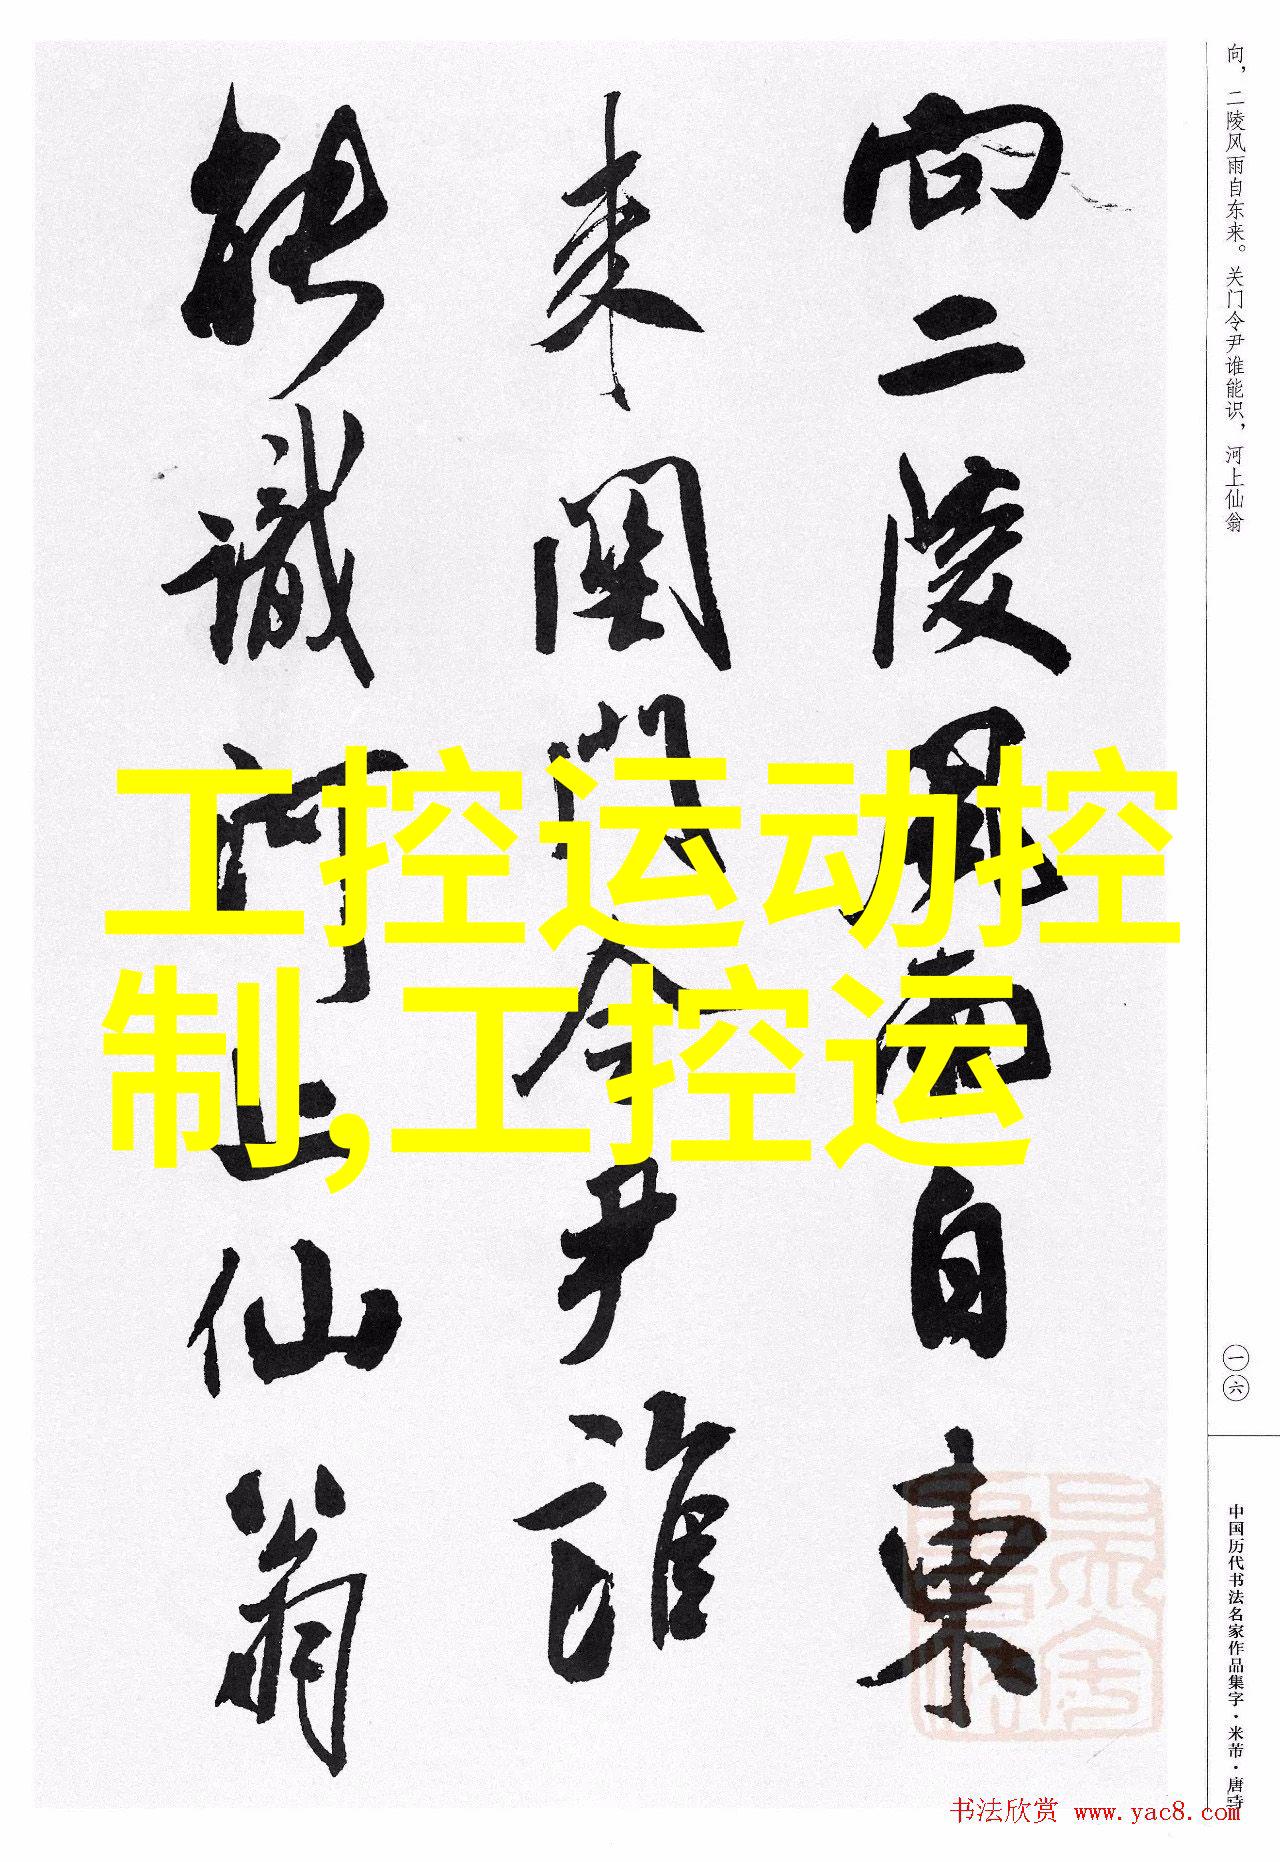 向二陵风雨自東
来関門令尹誰
能識河上仙翁
工控运动控
制,工控运
向，二陵风雨自东来。关门令尹谁能识，河上仙翁
一六
中国历代书法名家作品集字·米芾·唐诗
书法欣赏 www.yac8.com